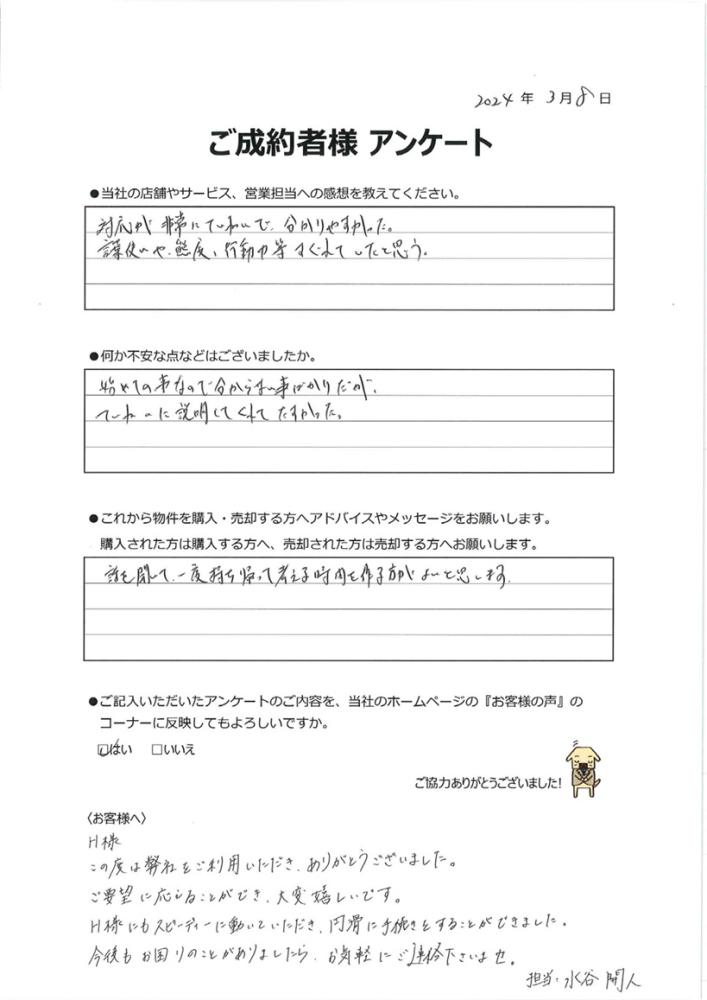 2024年 3月8日
ご成約者様 アンケート
●当社の店舗やサービス、営業担当への感想を教えてください。
対応が非常にていねいで、分かりやすかった。
言葉使いや、態度、行動力等すぐれていたと思う。
●何か不安な点などはございましたか。
始めての事なので分からない事ばかりだが、
ていねいに説明してくれてたすかった。
●これから物件を購入・売却する方へアドバイスやメッセージをお願いします。
購入された方は購入する方へ、売却された方は売却する方へお願いします。
話を聞いて、一度持ち帰って考える時間を作る方がよいと思います。
●ご記入いただいたアンケートのご内容を、当社のホームページの『お客様の声』の
コーナーに反映してもよろしいですか。
☑はい □いいえ
ご協力ありがとうございました!
〈お客様へ〉
H様
この度は弊社をご利用いただき、ありがとうございました。
ご要望に応えることができ、大変嬉しいです。
H様にもスピーディーに動いていただき、円滑に手続きをすることができました。
今後もお困りのことがありましたら、お気軽にご連絡下さいませ。
担当:水谷